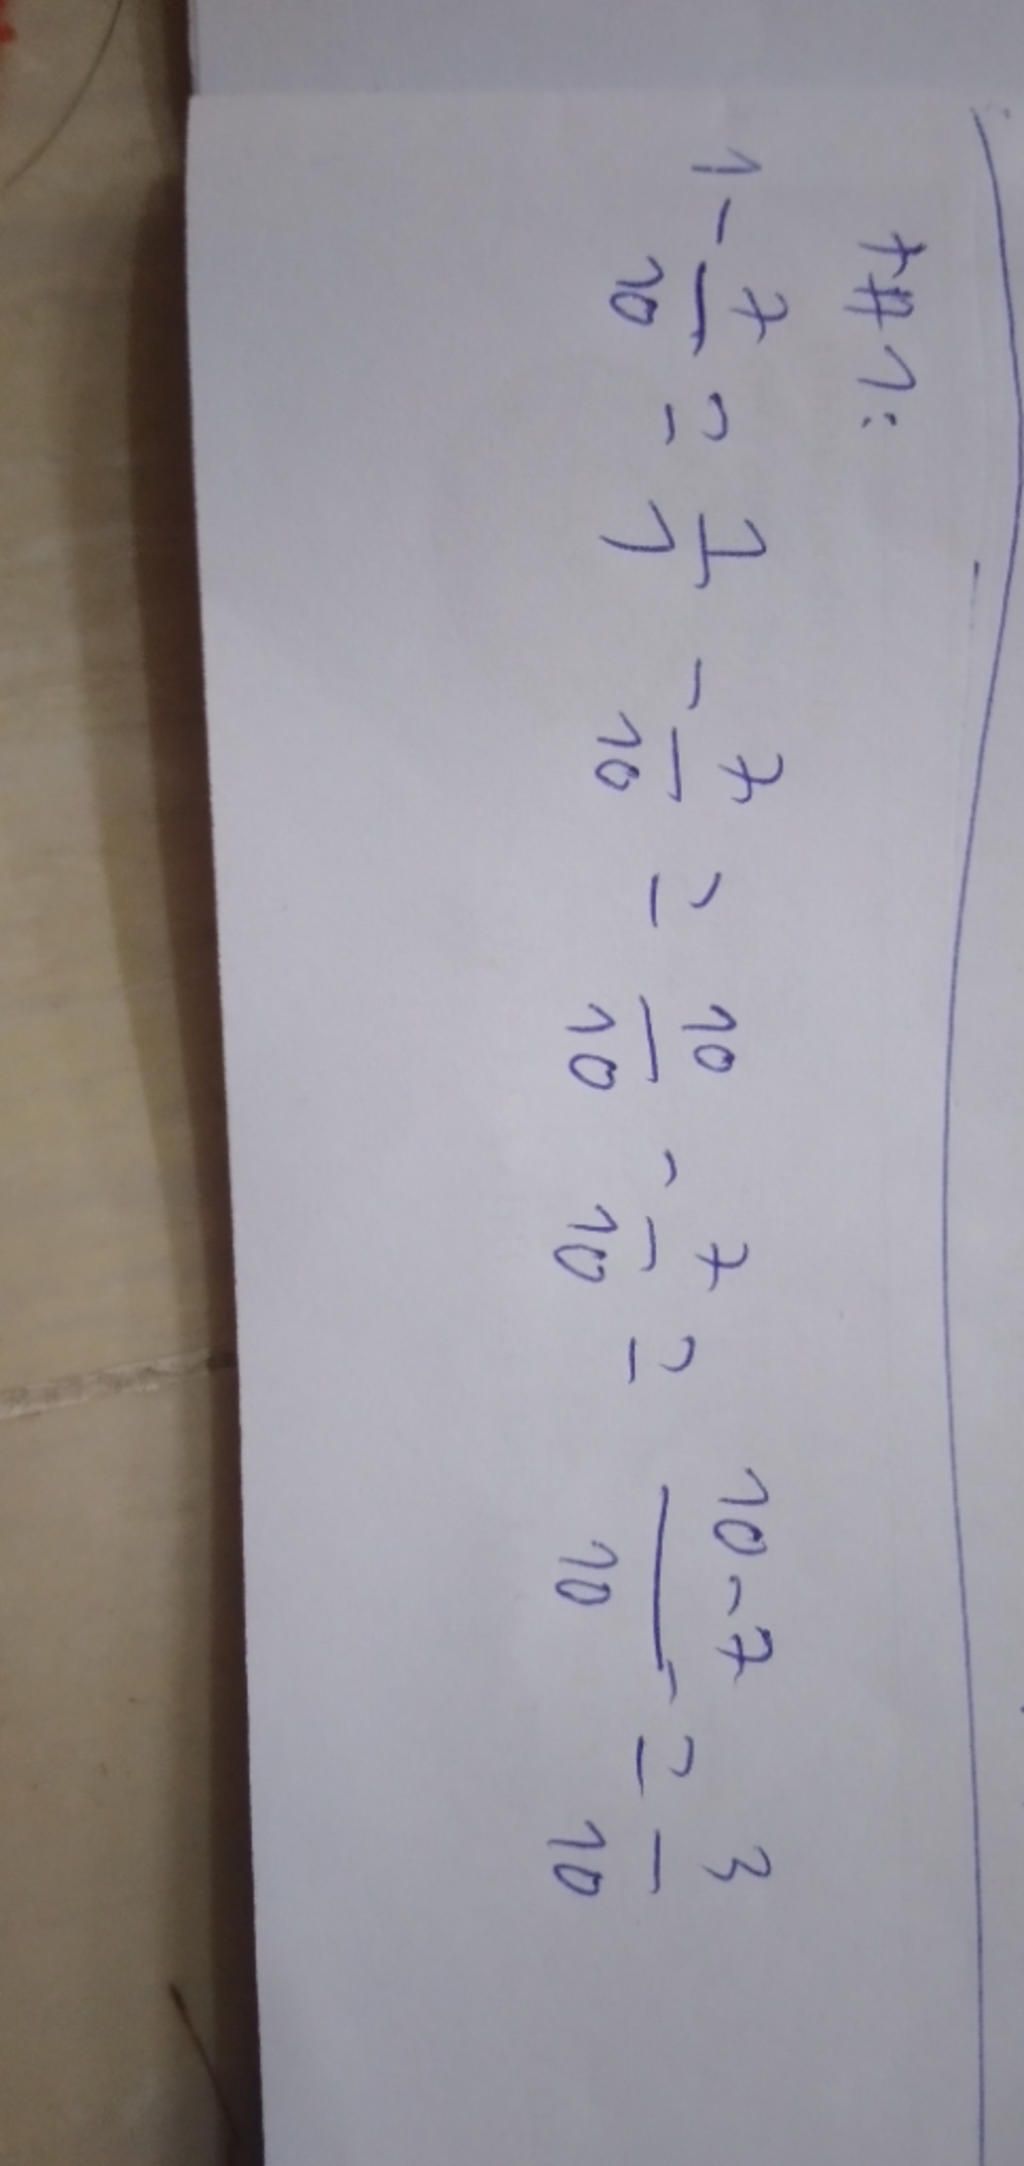 +#1:
1 - 7/10 = 1/1 - 7/10 = 10/10 - 7/10 = 10-7/10 = 3/10